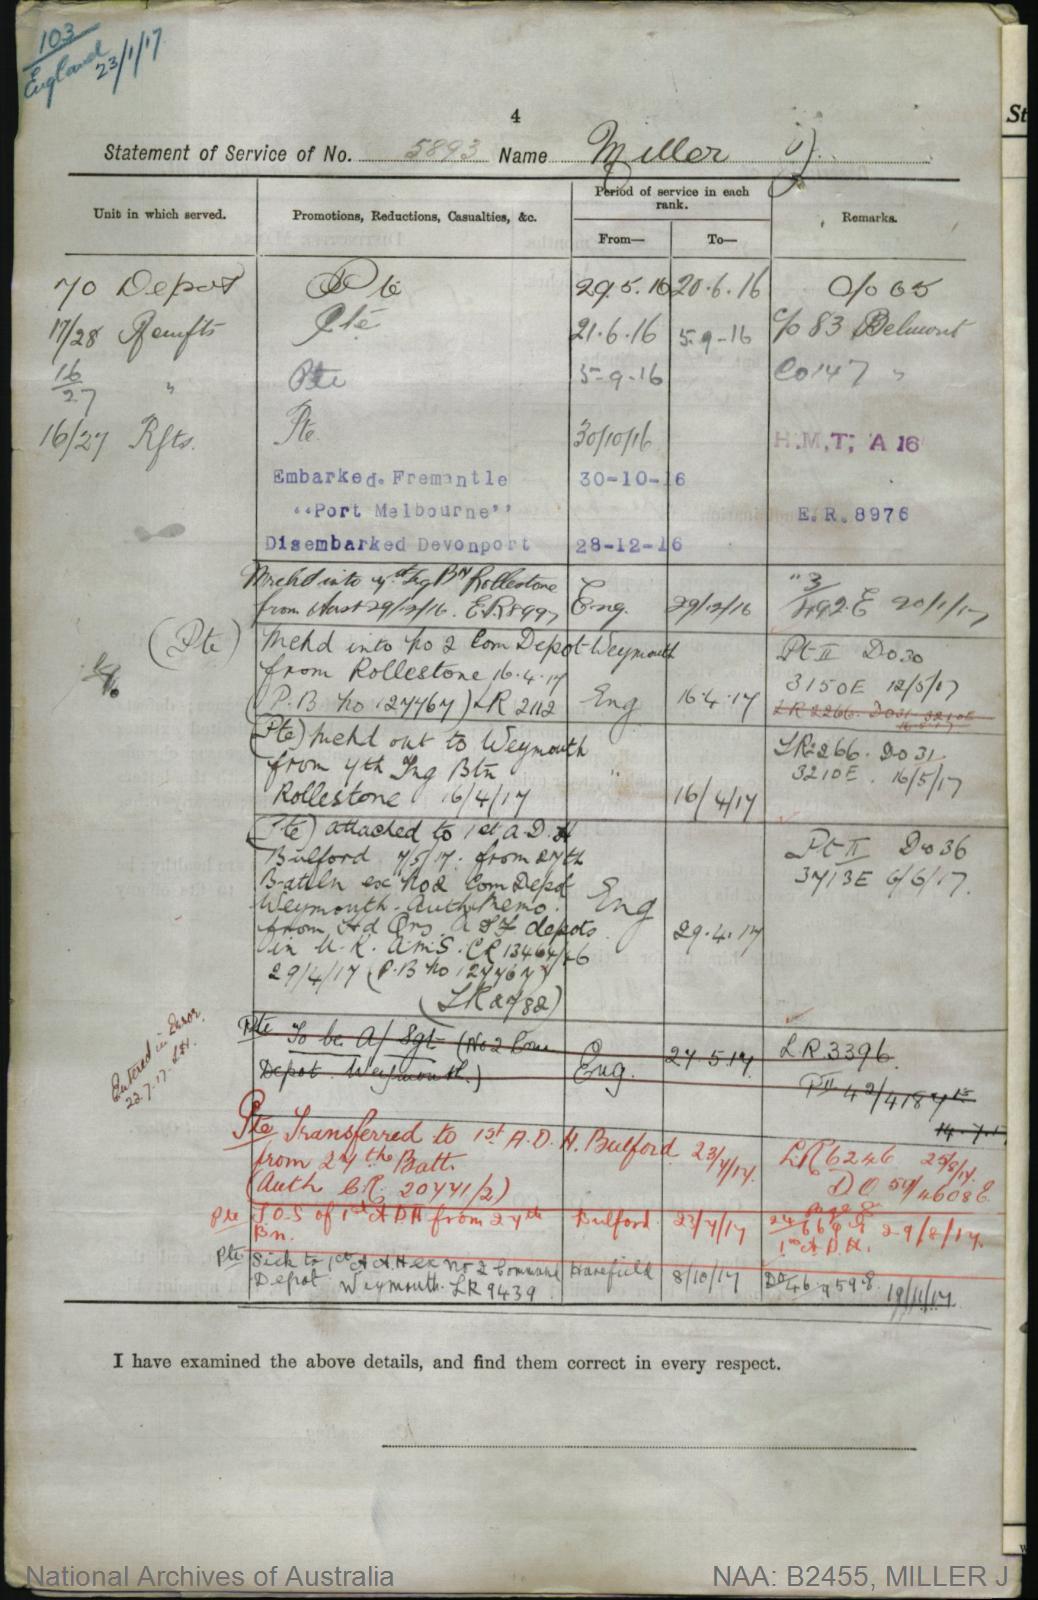 103
England 23/1/17
4
Statement of Service of No. 5893 Name Miller J.
Unit in which served.
Promotions, Reductions, Casualties, &c.
Period of service in each rank.
From—
To—
Remarks.
70 Depot Pte 29.5.16 20.6.16 c/o 65
17/28 Reinfts Pte 21.6.16 5-9-16 c/o 83 Belmont
16/27 " Pte 5-9-16 Co 147 "
16/27 Rfts. Pte 30/10/16 H.M.T. A 16
Embarked. Fremantle 30-10-16
"Port Melbourne" E.R.8976
Disembarked Devonport 28-12-16
Mrchd into Trg Bn Rollestone
from 29/12/16. E.R 8997 Eng. 29/12/16 3/492.E 20/1/17
(Pte) Mchd into No 2 Com Depot Weymouth
from Rollestone 16.4.17
(P.B No 127767) LR 2112 Eng 16.4.17
Pt II Do 30
3150E 12/5/17
LR 2266. Do 31 3210E
16.5.17
(Pte) Mchd out to Weymouth
from 7th Trg Btn "
Rollestone 16/4/17 16/4/17
LR 2266. Do 31
3210E. 16/5/17
(Pte) attached to 1st A.D.H
Bulford 7/5/17. from 27th
Battln ex No 2 Com Depot
Weymouth. Auth Memo.
from Hd Qrs. A.I.F depots
in U.K. AMS. CR 13464/46
29/4/17 (P.B No 127767)
(LR 2782)
Eng 29.4.17
Pt II Do 36
3713E 6/6/17.
Entered in Error.
22.7.17.
Pte To be A/Sgt (No 2 Com
Depot. Weymouth.) Eng. 27.5.17 LR 3396.
PII 42/4187
14.7.17
Pte Transferred to 1st A.D.H. Bulford 23/7/17.
from 27th Batt.
(Auth C.R. 20771/2)
LR 6246 25/8/17.
DO 50/4608E
Pte T.O.S of 1st ADH from 27th Bn. Bulford. 23/7/17
1st A.D.H. 29/8/17.
Pte Sick to 1st A.A.H ex No 2 Command Harefield 8/10/17
Depot Weymouth. LR 9439 19/11/17.
I have examined the above details, and find them correct in every respect.
St
National Archives of Australia
NAA: B2455, MILLER J